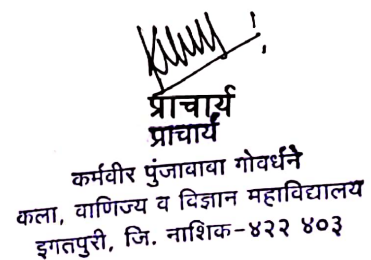 प्राचार्य
प्राचार्य
कर्मवीर पुंजाबाबा गोवर्धने
कला, वाणिज्य व विज्ञान महाविद्यालय
इगतपुरी, जि. नाशिक-४२२ ४०३